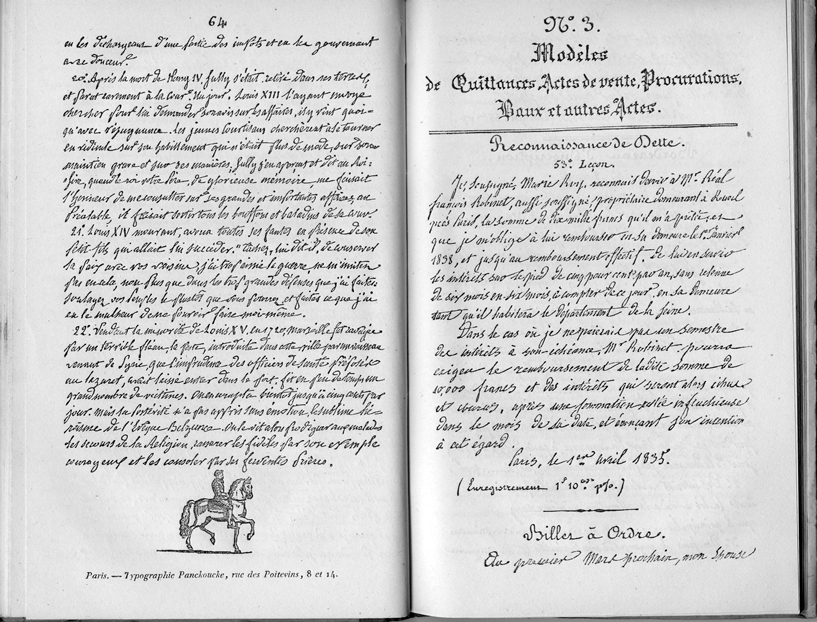 64
en les déchargeant d'une partie des impôts et en les gouvernant
avec douceur.
20e. Après la mort de Henry IV, Sully s'était retiré dans ses terres,
et parut rarement à la Cour. Un jour, Louis XIII l'ayant envoyé
chercher pour lui demander son avis sur les affaires, il y vint quoi-
qu'avec répugnance. Les jeunes Courtisans cherchèrent à le tourner
en ridicule sur son habillement qui n'était plus de mode, sur son
maintien grave et sur ses manières, Sully s'en aperçut et dit au Roi:
Sire, quand le roi votre Père, de glorieuse mémoire, me faisait
l'honneur de me consulter sur les grandes et importantes affaires, au
Préalable, il faisait sortir tous les bouffons et baladins de la cour.
21. Louis XIV mourant, avoua toutes ses fautes en présence de son
petit fils qui allait lui succéder. Tâchez, lui dit-il, de conserver
la paix avec vos voisins; j'ai trop aimé la guerre, ne m'imitez
pas en cela, non plus que dans les trop grandes dépenses que j'ai faites.
Soulagez vos peuples le plutôt que vous pourrez et faites ce que j'ai
eu le malheur de ne pouvoir faire moi-même.
22e. Pendant la minorité de Louis XV, en 1720, Marseille fut ravagée
par un terrible fléau, la peste, introduite dans cette ville par un vaisseau
venant de Syrie, que l'imprudence des officiers de santé préposés
au lazaret, avait laissé entrer dans le port, fit en peu de temps un
grand nombre de victimes. On en compta bientôt jusqu'à cinq cents par
jour; mais la postérité n'a pas appris sans émotion, le sublime dé-
de l'Evêque Belzunce. On le vit alors prodiguer aux malades
les secours de la Religion, rassurer les fidèles par son exemple
courageux et les consoler par ses ferventes prières.
Paris. — Typographie Panckoucke, rue des Poitevins, 8 et 14.
No. 3.
Modèles
de Quittances, Actes de vente, Procurations,
Baux et autres Actes.
Reconnaissance de Dette.
53e. Leçon.
Je, soussigné, Marie Roy, reconnait devoir à Mr. Réal
françois Robinet, aussi soussigné, propriétaire demeurant à Rueil
près Paris, la somme de dix mille francs qu'il m'a prêtée, et
que je m'oblige à lui rembourser en sa demeure le 1er. Janvier
1838, et jusqu'au remboursement effectif, de lui en servir
les intérêts sur le pied de cinq pour cent par an, sans retenue
de six mois en six mois, à compter de ce jour, en sa demeure
tant qu'il habitera le Département de la Seine.
Dans le cas où je ne paierais pas un semestre
des intérêts à son échéance, Mr. Robinet pourra
exiger le remboursement de ladite somme de
10,000 francs et des intérêts qui seront alors échus
et courus, après une sommation restée infructueuse
dans le mois de sa date, et énonçant son intention
à cet égard.
Paris, le 1er avril 1835.
(Enregistrement 1f 10c p%.)
Billet à Ordre.
Au premier Mars prochain, mon Epouse